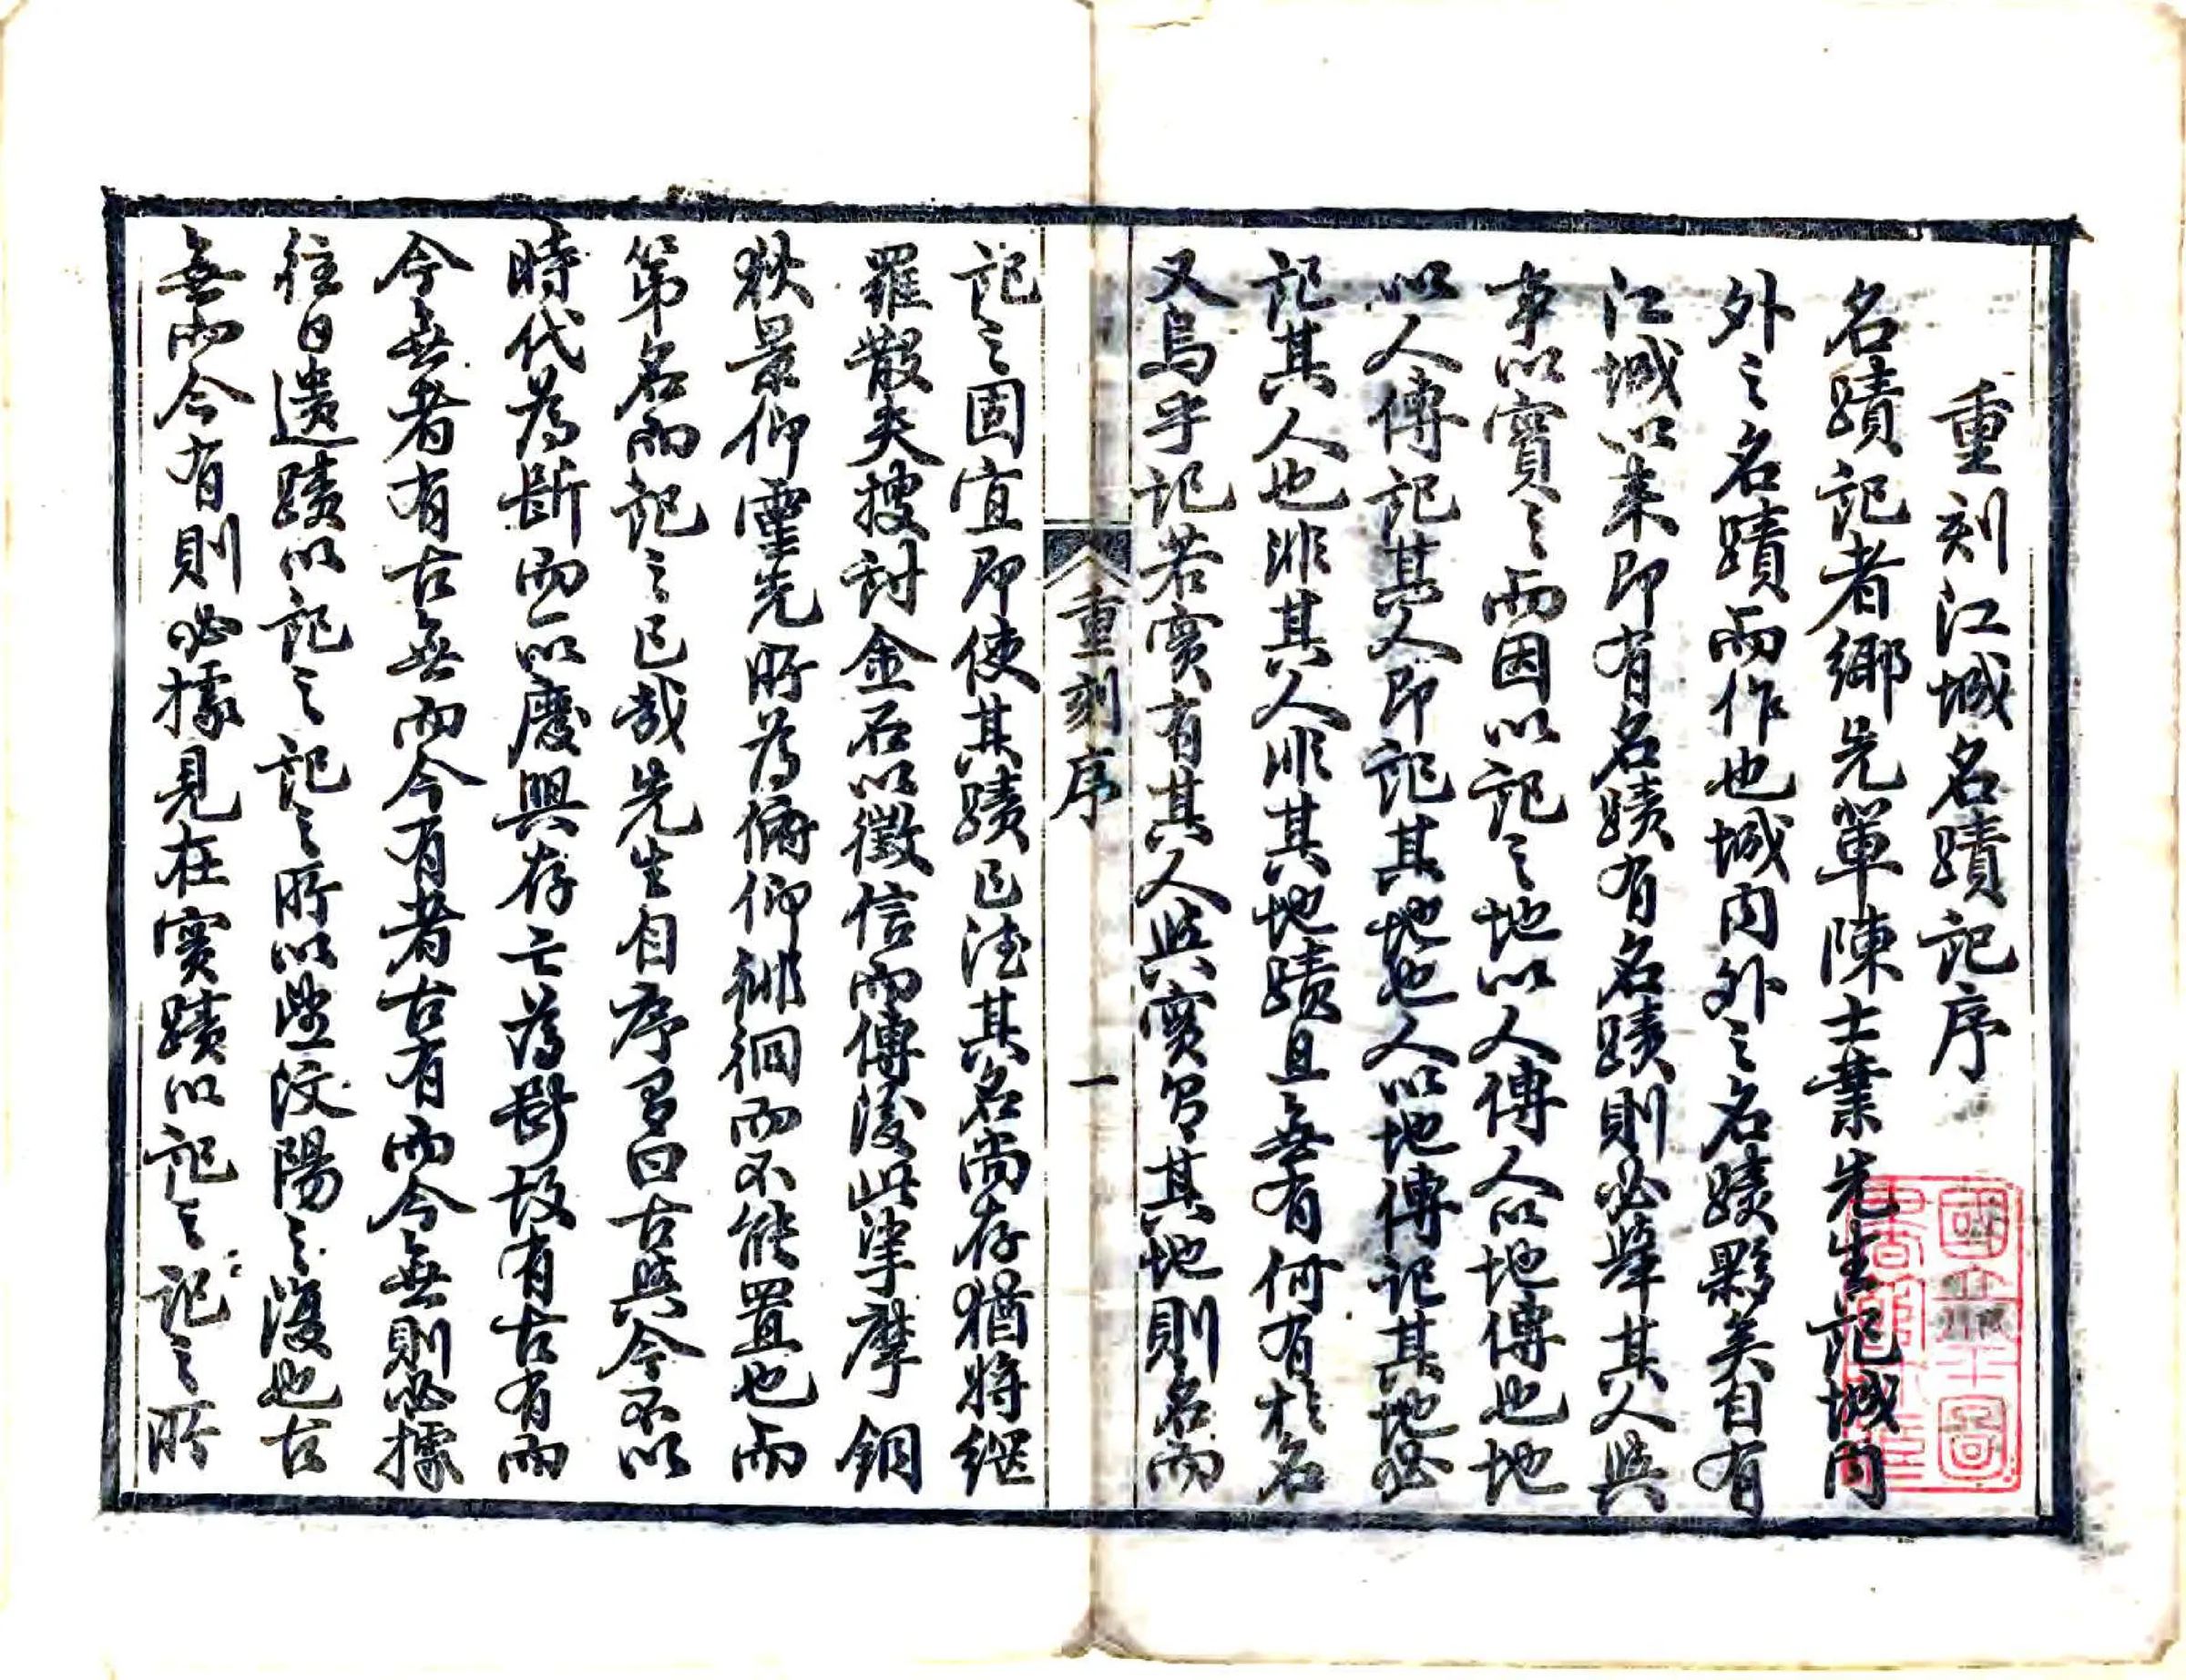 重刻江城名蹟記序
名蹟記者鄉先輩陳士業先生記城內
外之名蹟而作也城內外之名蹟夥矣自有
江城以來即有名蹟有名蹟則必舉其人與
事以實之而因以記之地以人傳人以地傳也地
以人傳記其人即記其地也人以地傳記其地必
記其人也非其人非其地蹟且無有何有於名
又烏乎記若實有其人與實有其地則名而
記之固宜即使其蹟已湮其名尚存猶將網
羅散失搜討金石以徵信而傳後此摩銅
狄景仰靈光所為俯仰徘徊而不能置也而
第名而記之已哉先生自序有曰古與今不以
時代為斷而以廢興存亡為斷故有古有而
今無者有古無而今有者古有而今無則必據
往日遺蹟以記之記之所以坐汶陽之澓也古
無而今有則必據見在實蹟以記之記之所
重刻序
一